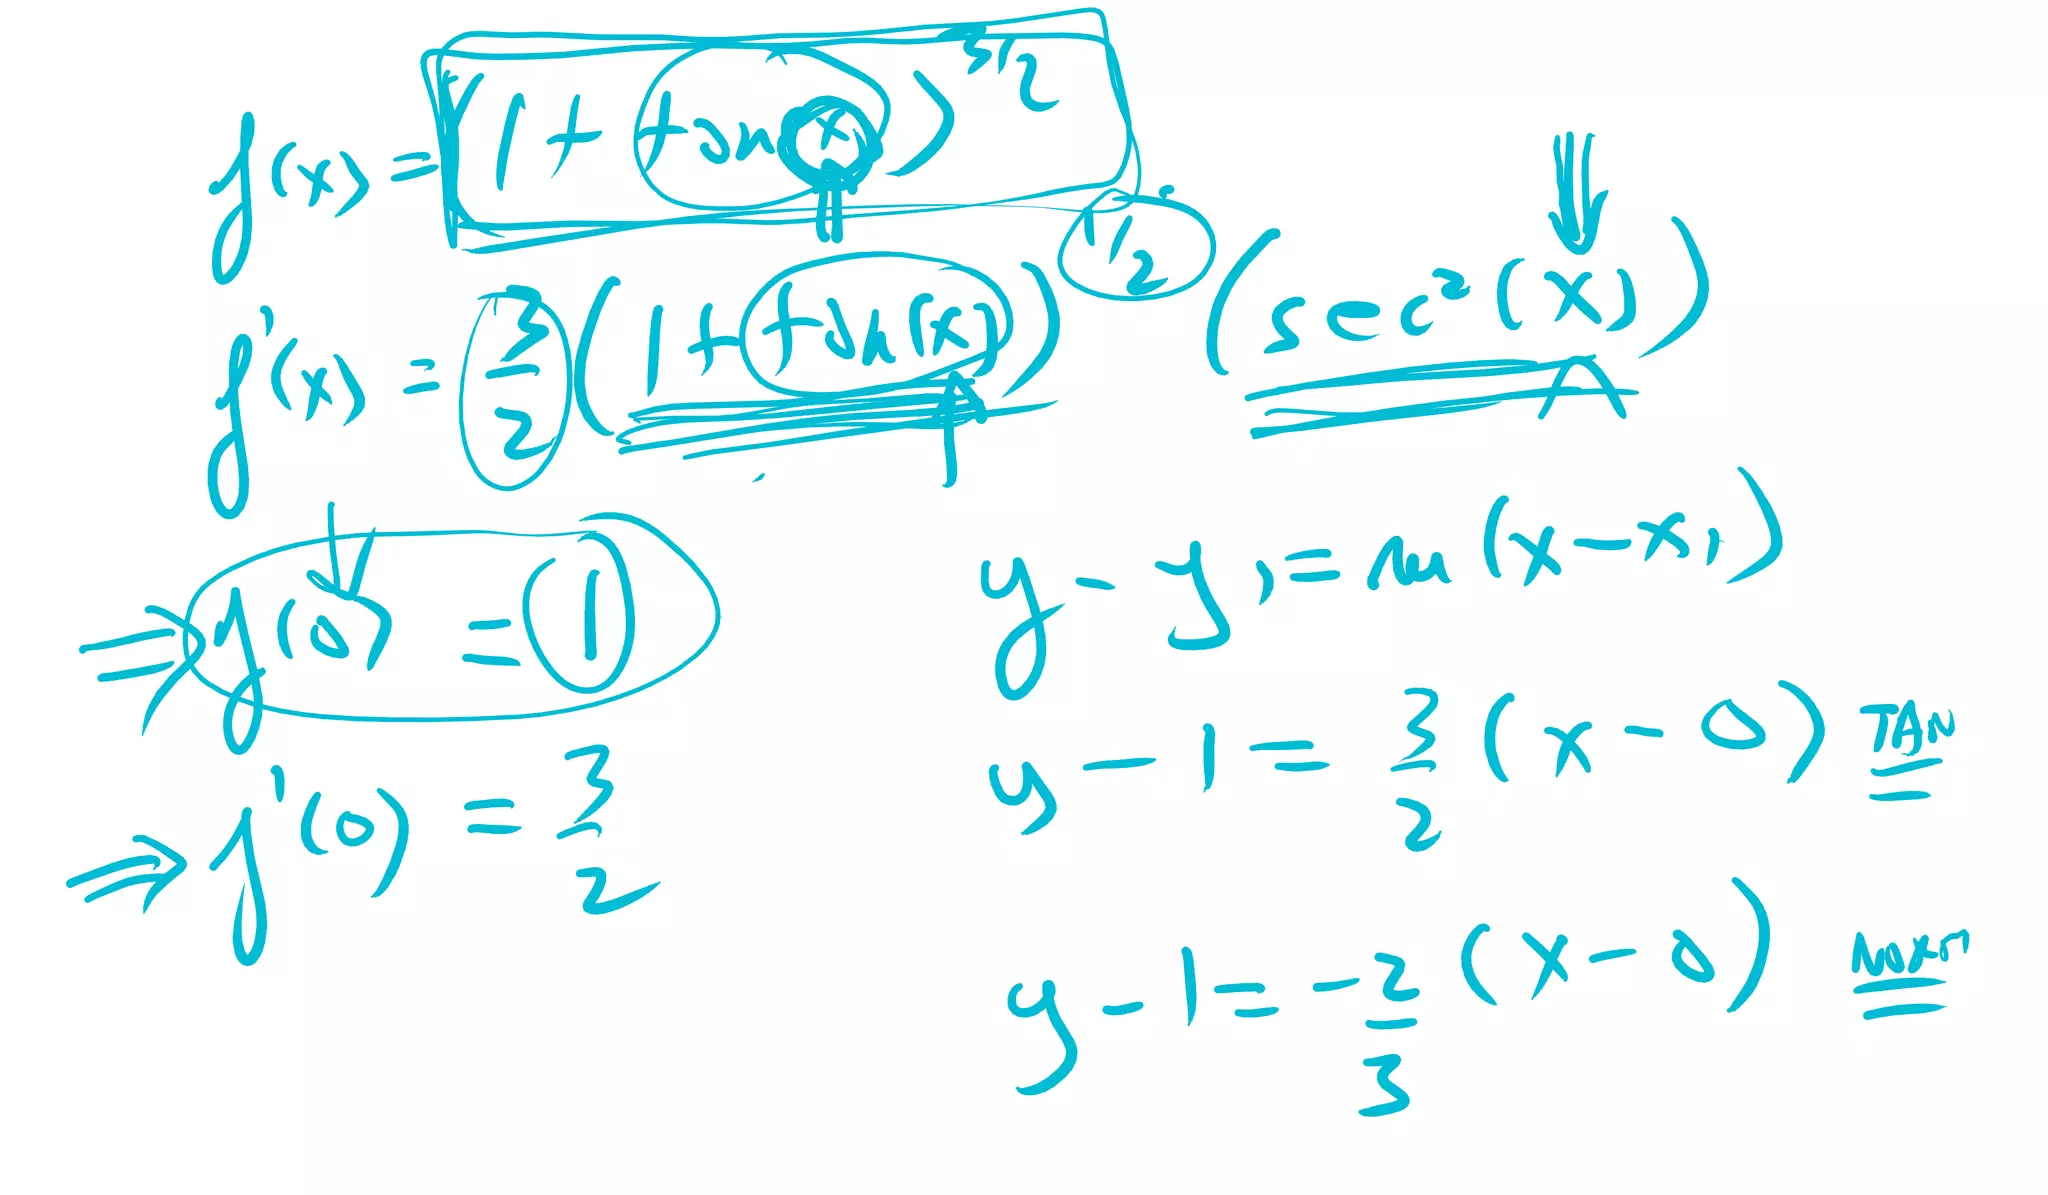 f(x) = (1 + tan x)^3/2
f'(x) = 3/2 (1 + tan(x))^1/2 (sec²(x))
⇒ f(0) = 1
⇒ f'(0) = 3/2
y - y₁ = m(x - x₁)
y - 1 = 3/2 (x - 0) TAN
y - 1 = -2/3 (x - 0) NORM